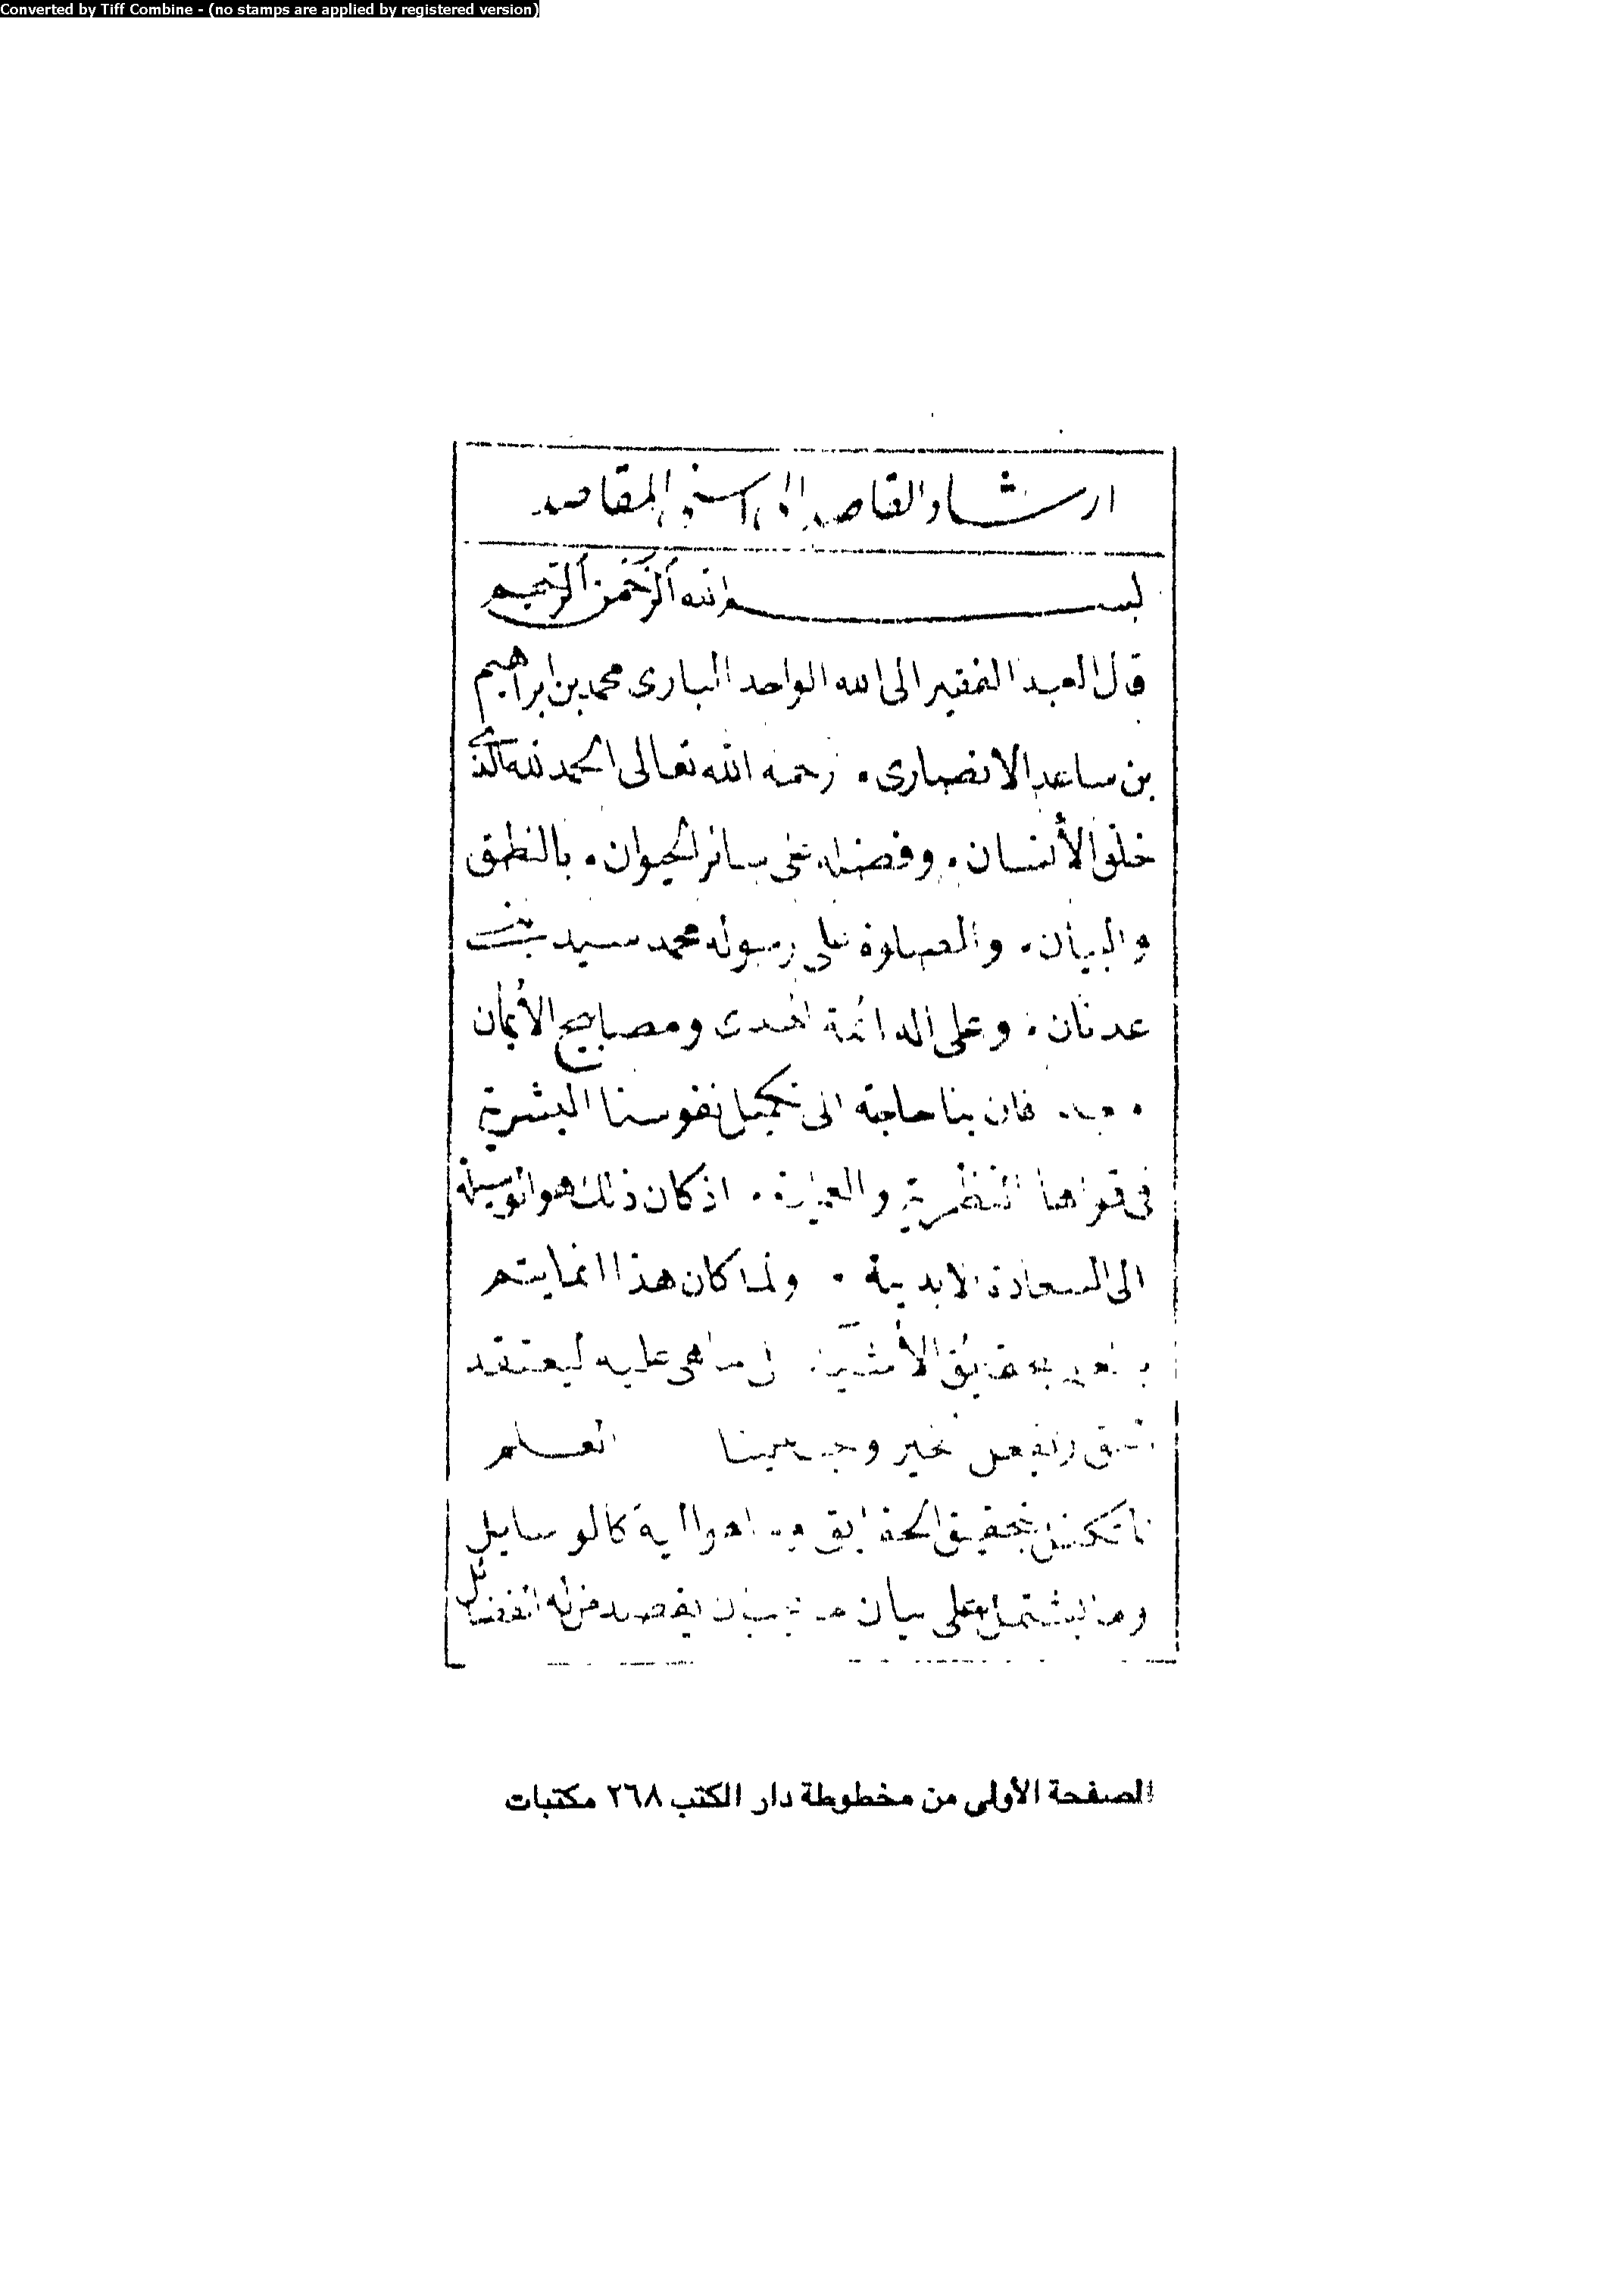 Converted by Tiff Combine - (no stamps are applied by registered version)
ارشاد القاصد الى اسنى المقاصد
بسم الله الرَّحْمن الرَّحيم
قال العبد الفقير الى الله الواحد البارى محمد بن ابراهيم
بن ساعد الانصارى . رحمه الله تعالى الحمد لله الذى
خلق الأنسان . وفضله على سائر الحيوان . بالنطق
والبيان . والصلوة على رسوله محمد سيد
عدنان . وعلى اله ائمة الهدى ومصابيح الأيمان
فان بنا حاجة الى تكميل نفوسنا البشرية
فى قواها النظرية والعملية . اذ كان ذلك هو الوسيلة
الى السعادة الابدية . ولما كان هذا انما يتم
الأشيآء على ما هى عليه ليعتقد
العلم
بتحقيق الحقايق كالوسايل
وما يشتمل على بيان يقصد من الفضائل
الصفحة الأولى من مخطوطة دار الكتب ٢٦٨ مكتبات